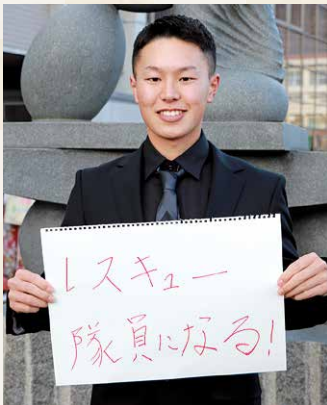 レスキュー
隊員になる!